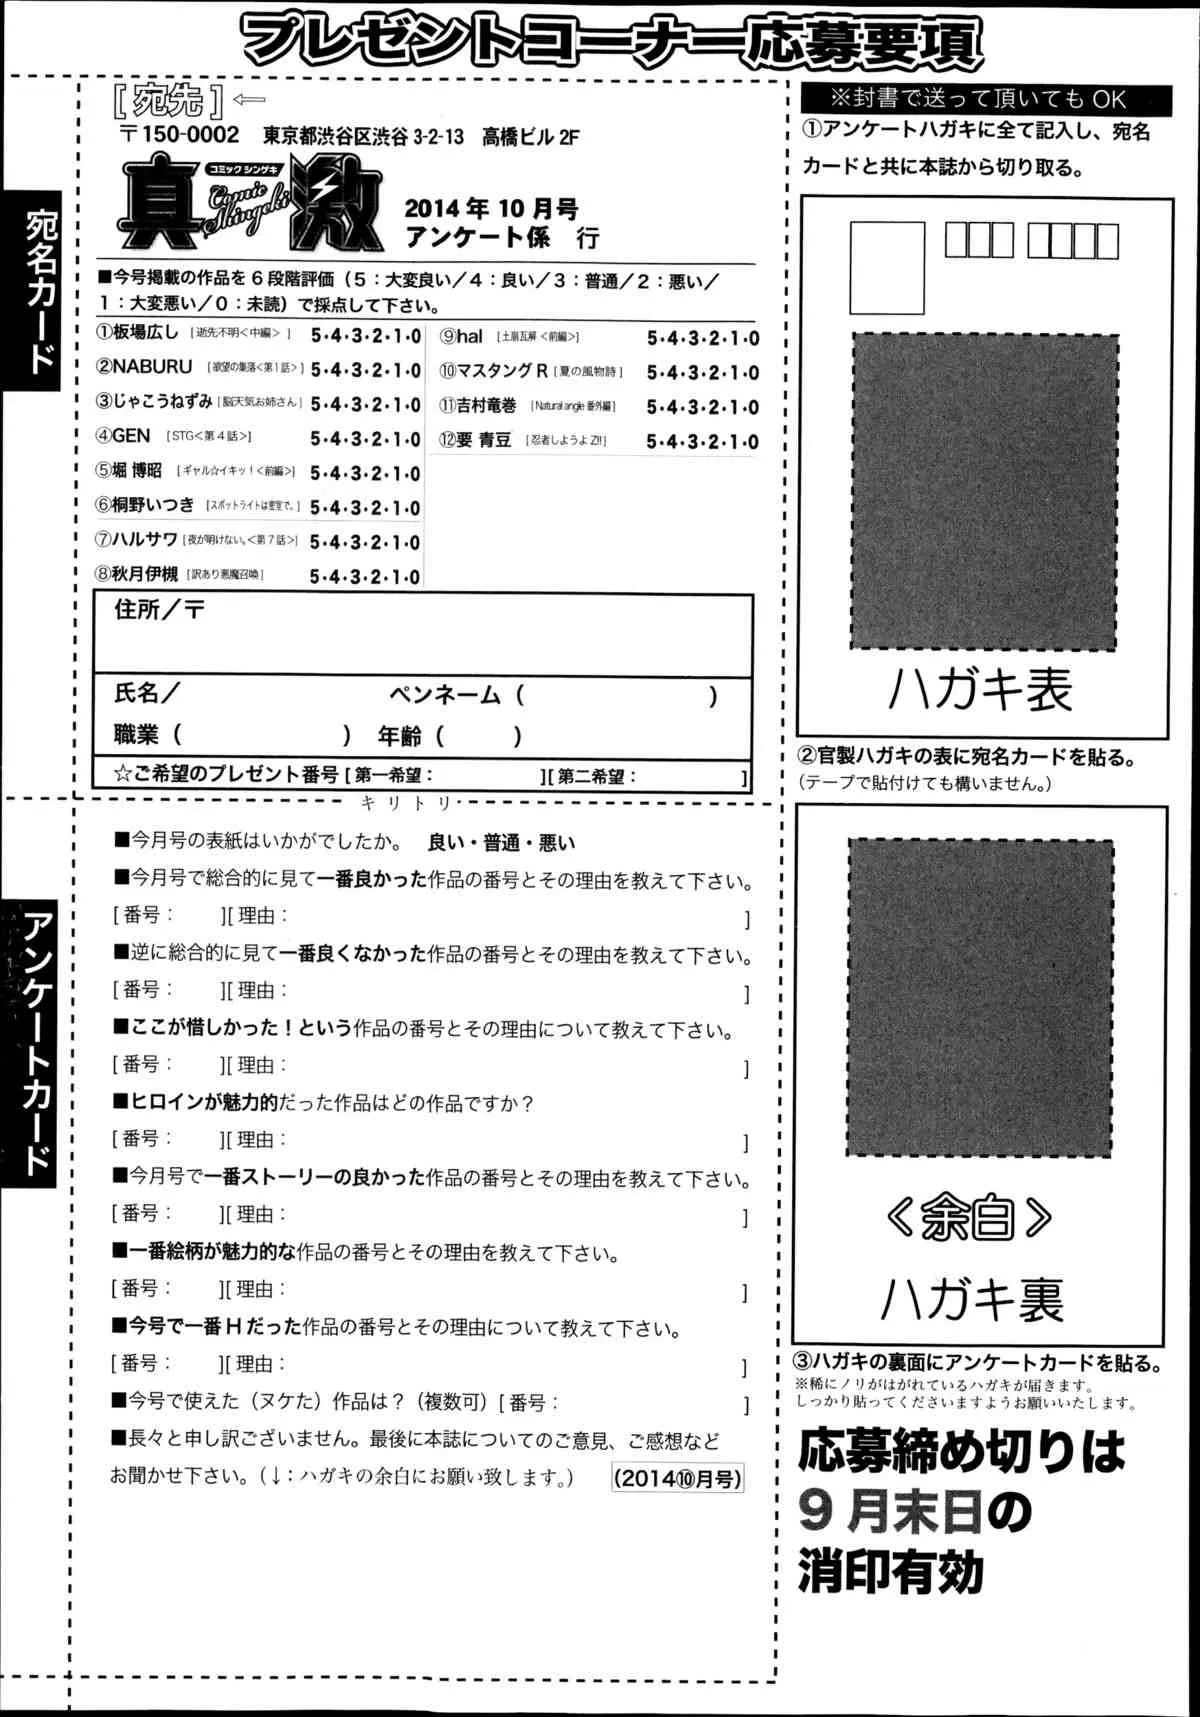 プレゼントコーナー応募要項
[宛先]⇦
〒150-0002 東京都渋谷区渋谷 3-2-13 高橋ビル 2F
コミックシンゲキ
真激
Comic Shingeki
2014年10月号
アンケート係 行
宛名カード
■今号掲載の作品を6段階評価（5：大変良い／4：良い／3：普通／2：悪い／
1：大変悪い／0：未読）で採点して下さい。
①板場広し [逝先不明<中編>] 5・4・3・2・1・0
②NABURU [欲望の集落<第1話>] 5・4・3・2・1・0
③じゃこうねずみ [脳天気お姉さん] 5・4・3・2・1・0
④GEN [STG<第4話>] 5・4・3・2・1・0
⑤堀 博昭 [ギャル☆イキッ！<前編>] 5・4・3・2・1・0
⑥桐野いつき [スポットライトは密室で。] 5・4・3・2・1・0
⑦ハルサワ [夜が明けない。<第7話>] 5・4・3・2・1・0
⑧秋月伊槻 [訳あり悪魔召喚] 5・4・3・2・1・0
⑨hal [土崩瓦解<前編>] 5・4・3・2・1・0
⑩マスタングR [夏の風物詩] 5・4・3・2・1・0
⑪吉村竜巻 [Natural angle 番外編] 5・4・3・2・1・0
⑫要 青豆 [忍者しようよZ!!] 5・4・3・2・1・0
住所／〒
氏名／ ペンネーム（ ）
職業（ ） 年齢（ ）
☆ご希望のプレゼント番号 [第一希望： ][第二希望： ]
キリトリ
アンケートカード
■今月号の表紙はいかがでしたか。 良い・普通・悪い
■今月号で総合的に見て一番良かった作品の番号とその理由を教えて下さい。
[番号： ][理由： ]
■逆に総合的に見て一番良くなかった作品の番号とその理由を教えて下さい。
[番号： ][理由： ]
■ここが惜しかった！という作品の番号とその理由について教えて下さい。
[番号： ][理由： ]
■ヒロインが魅力的だった作品はどの作品ですか？
[番号： ][理由： ]
■今月号で一番ストーリーの良かった作品の番号とその理由を教えて下さい。
[番号： ][理由： ]
■一番絵柄が魅力的な作品の番号とその理由を教えて下さい。
[番号： ][理由： ]
■今号で一番Hだった作品の番号とその理由について教えて下さい。
[番号： ][理由： ]
■今号で使えた（ヌケた）作品は？（複数可）[番号： ]
■長々と申し訳ございません。最後に本誌についてのご意見、ご感想など
お聞かせ下さい。（↓：ハガキの余白にお願い致します。） (2014⑩月号)
※封書で送って頂いてもOK
①アンケートハガキに全て記入し、宛名
カードと共に本誌から切り取る。
ハガキ表
②官製ハガキの表に宛名カードを貼る。
（テープで貼付けても構いません。）
＜余白＞
ハガキ裏
③ハガキの裏面にアンケートカードを貼る。
※稀にノリがはがれているハガキが届きます。
しっかり貼ってくださいますようお願いいたします。
応募締め切りは
9月末日の
消印有効